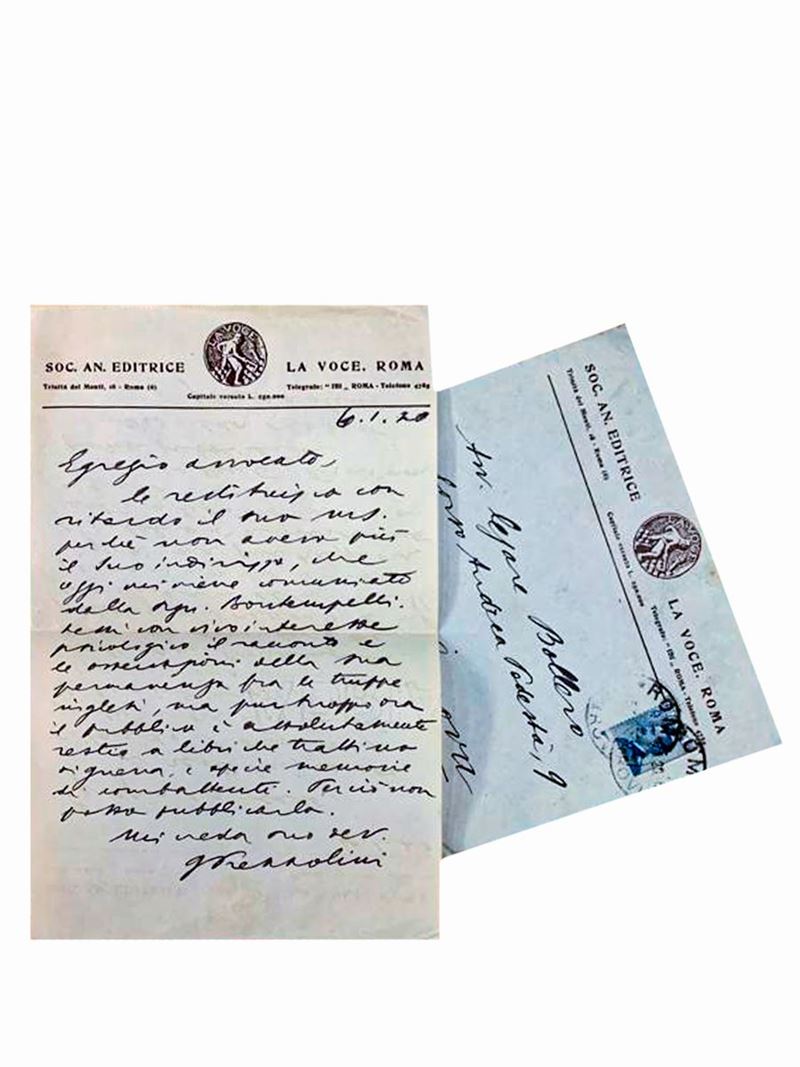 LA VOCE
SOC. AN. EDITRICE LA VOCE. ROMA
Trinità dei Monti, 18 - Roma (6) Telegrafo: "IRI" ROMA - Telefono
Capitale versato L. 250.000
6.1.20
Egregio avvocato,
le restituisco con
ritardo il suo ms.
perchè non avevo più
il suo indirizzo, che
oggi mi viene comunicato
dalla Sgn. Bontempelli.
Lessi con vivo interesse
psicologico il racconto e
le osservazioni della sua
permanenza fra le truppe
inglesi, ma purtroppo ora
il pubblico è assolutamente
restio a libri che trattino
di guerra, e specie memorie
di combattenti. Perciò non
posso pubblicarlo.
Mi creda suo dev.
GPrezzolini
SOC. AN. EDITRICE LA VOCE. ROMA
Trinità dei Monti, 18 - Roma (6) Telegrafo: "IRI" ROMA - Telefono
Capitale versato L. 250.000
LA VOCE
Avv. Cesare Ballero
Corso Andrea Podestà, 9
ROMA